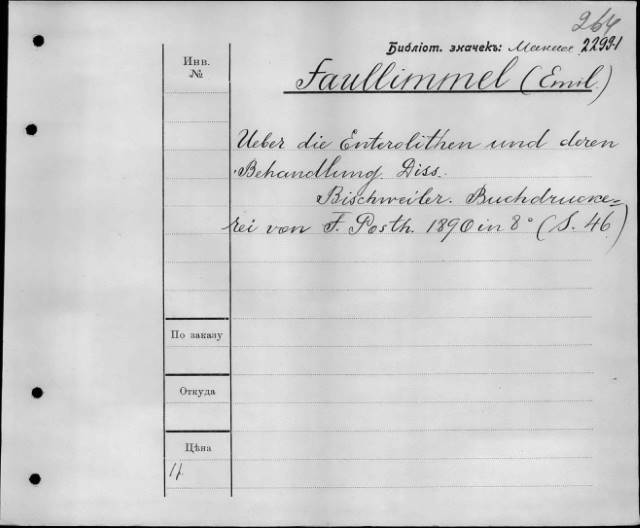 264
Библіот. значекъ: 22991
Инв.
№
Faullimmel (Emil.)
Ueber die Enterolithen und deren
Behandlung. Diss.
Bischweiler. Buchdrucke-
rei von F. Posth. 1890 in 8° (S. 46)
По заказу
Откуда
Цѣна